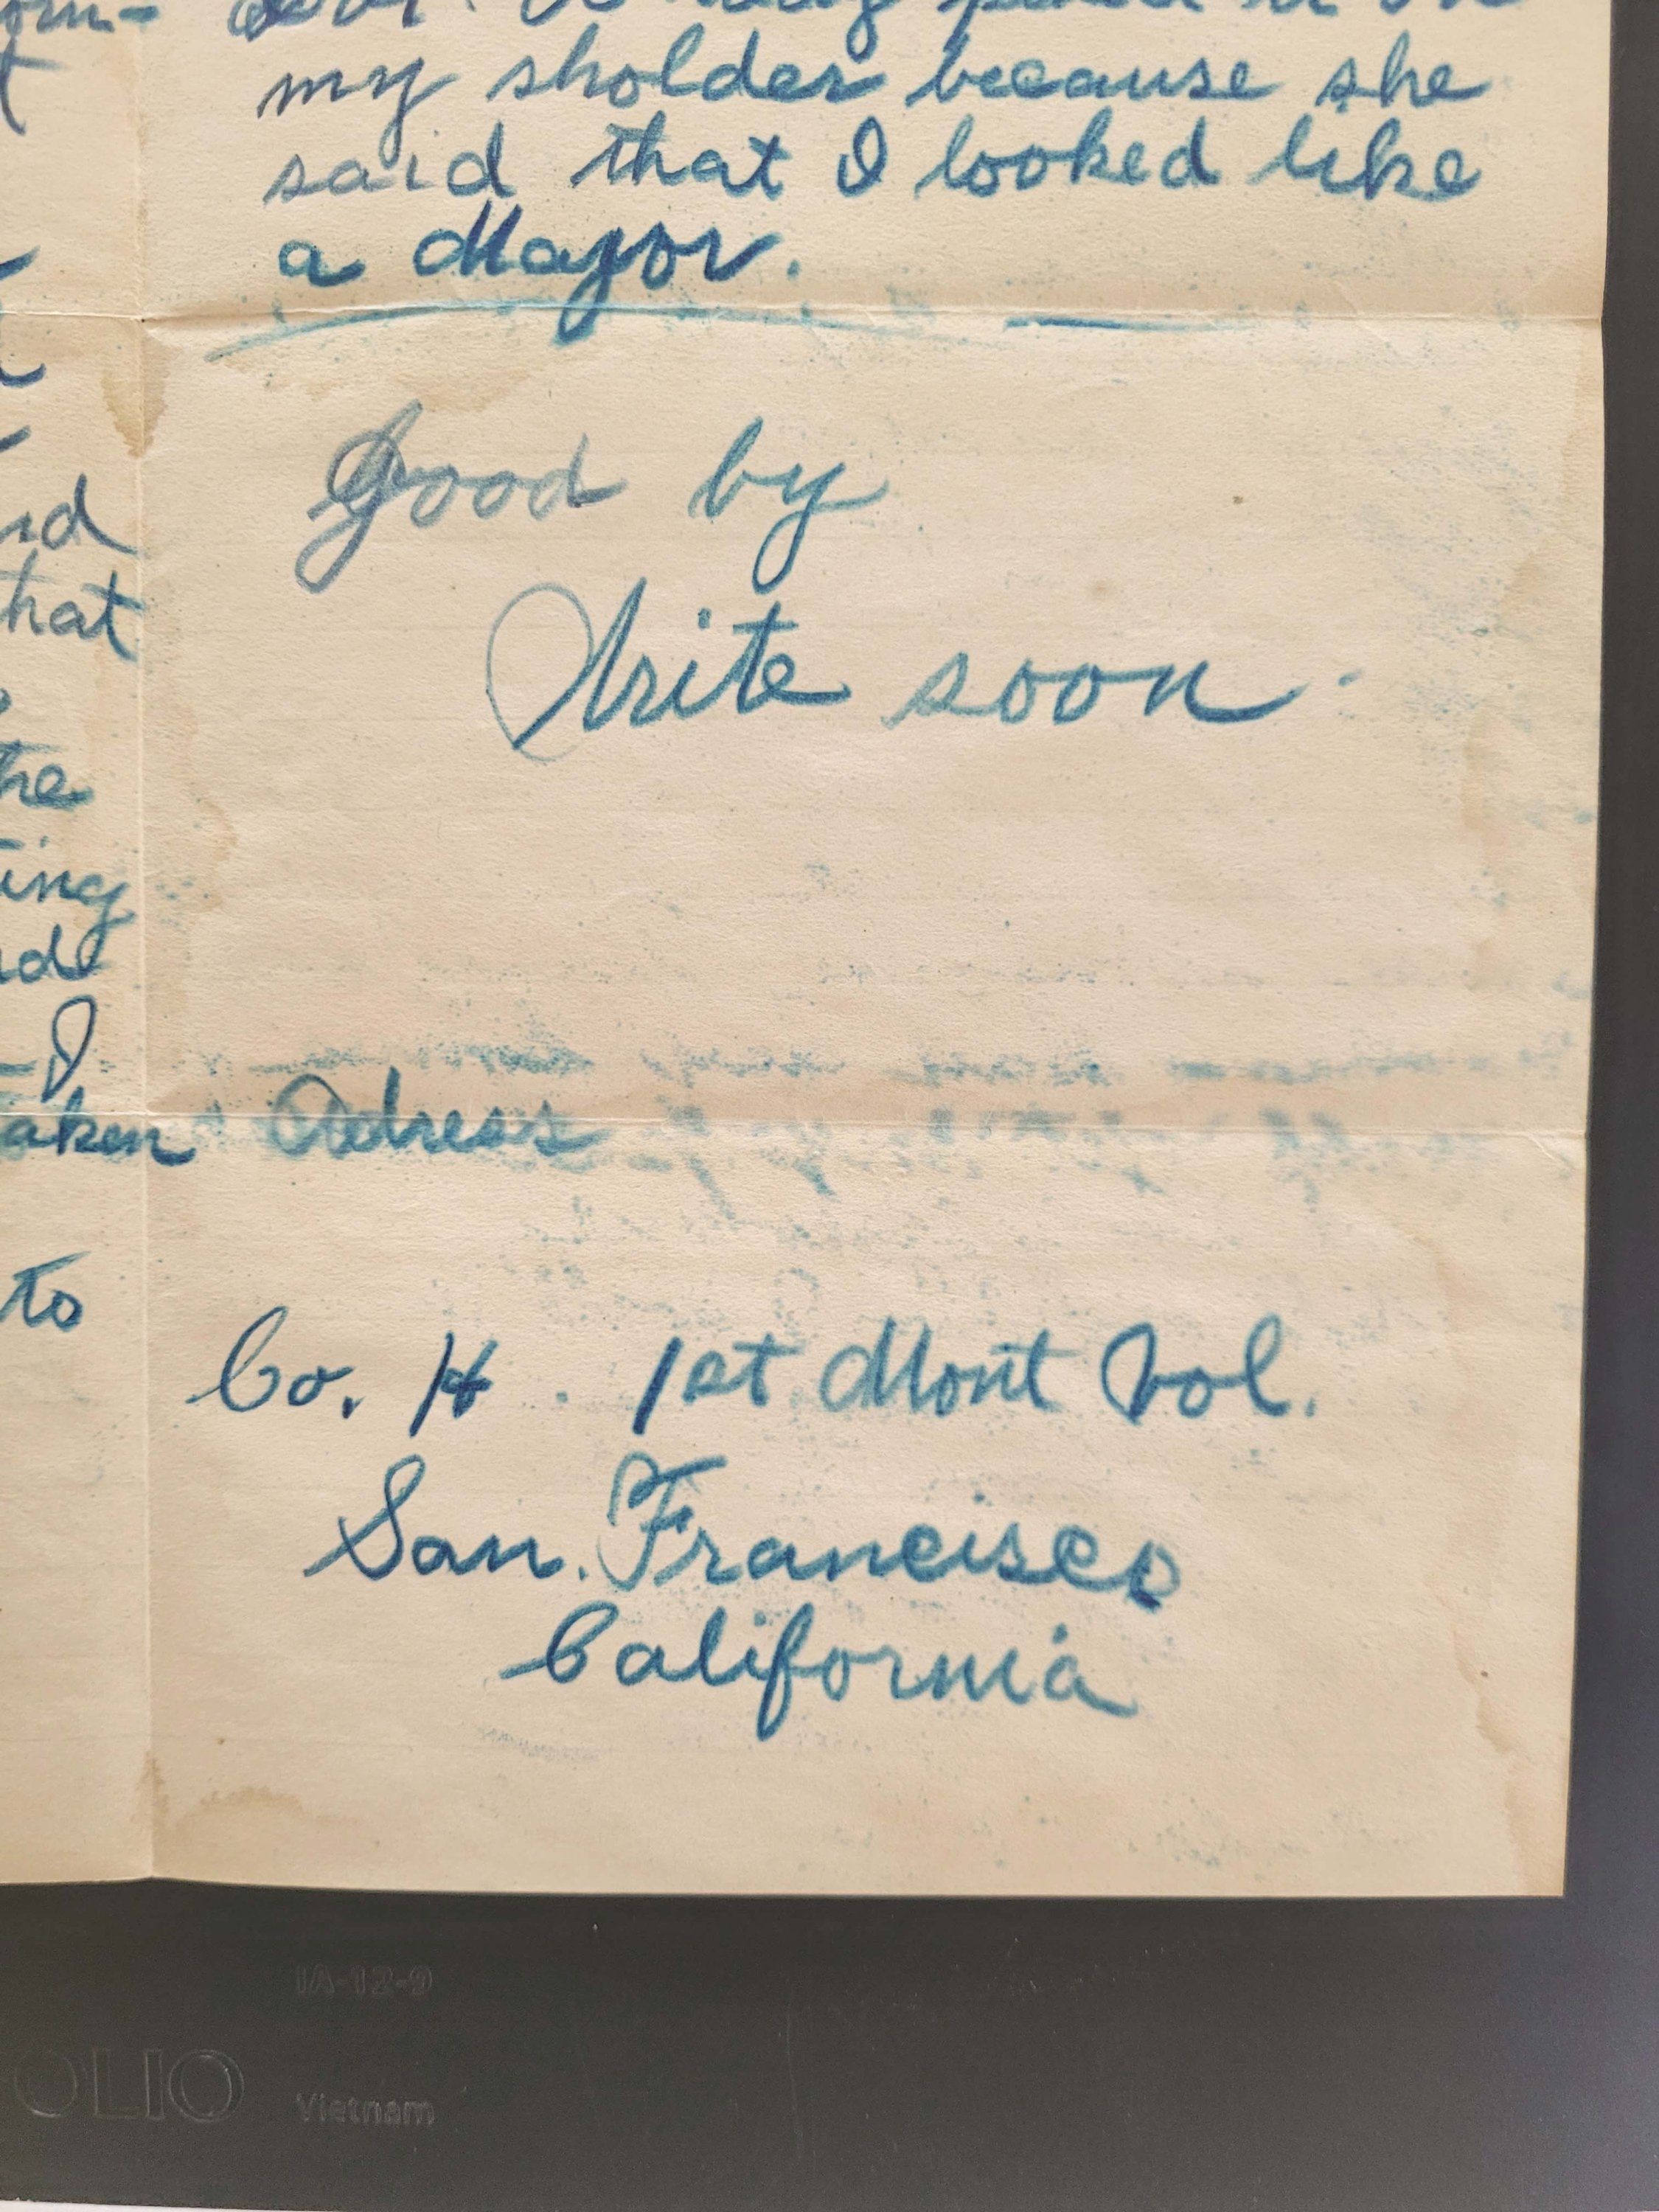 my sholder because she
said that I looked like
a Mayor.
Good by
Write soon.
hat
ing
I
aken
to
Adress
Co. H. 1st Mont Vol.
San. Francisco
California
IA-12-9
OLIO
Vietnam